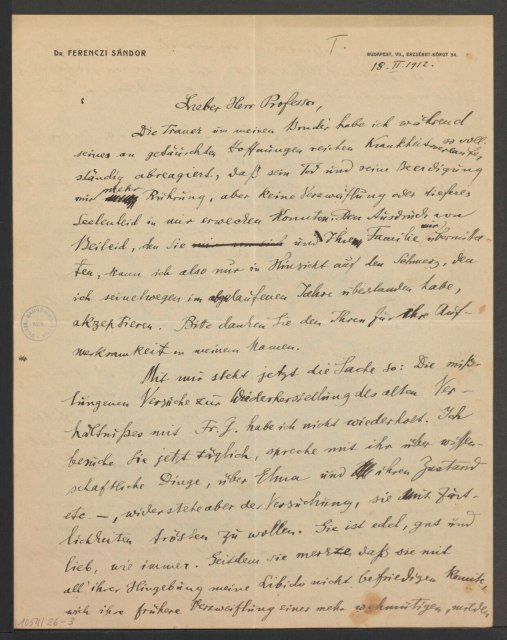 Dr. FERENCZI SÁNDOR
I.
BUDAPEST, VII., ERZSÉBET-KÖRUT 54.
18. II. 1912.
Lieber Herr Professor,
Die Trauer um meinen Bruder habe ich während
seines an getäuschten Hoffnungen reichen Krankheitsverlaufes so voll-
ständig abreagiert, daß sein Tod und seine Beerdigung
nur mehr Rührung, aber keine Verzweiflung oder tieferes
Seelenleid in mir erwecken konnten. Den Ausdruck von
Beileid, den Sie und Ihre Familie mir übermittel-
ten, kann ich also nur in Hinsicht auf den Schmerz, den
ich seinetwegen im abgelaufenen Jahre überstanden habe,
akzeptieren. Bitte danken Sie den Ihren für Ihre Auf-
merksamkeit in meinem Namen.
Mit mir steht jetzt die Sache so: Die miß-
lungenen Versuche zur Wiederherstellung des alten Ver-
hältnißes mit Fr. G. habe ich nicht wiederholt. Ich
besuche Sie jetzt täglich, spreche mit ihr über wissen-
schaftliche Dinge, über Elma und ihren Zustand
etc –, widerstehe aber der Versuchung, sie mit Zärt-
lichkeiten trösten zu wollen. Sie ist edel, gut und
lieb, wie immer. Seitdem sie merkte daß sie mit
all' ihrer Hingebung meine Libido nicht befriedigen konnte,
wich ihre frühere Verzweiflung einer mehr wehmütigen, milden
1054/26-3